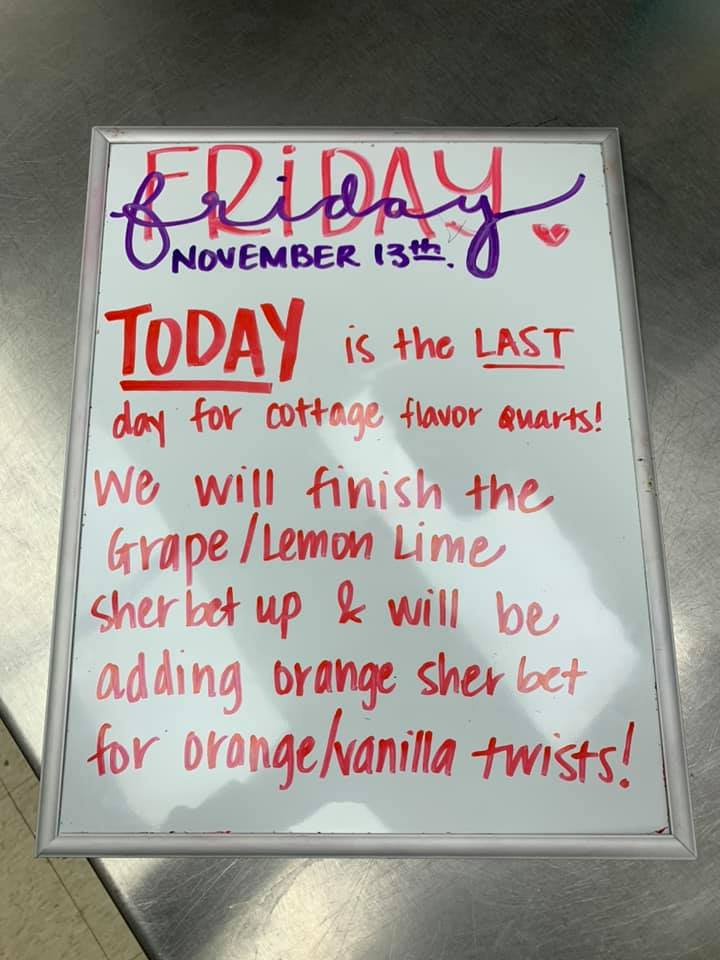 FRiDAY
friday
NOVEMBER 13th.
TODAY is the LAST
day for cottage flavor quarts!
We will finish the
Grape/Lemon Lime
sherbet up & will be
adding orange sherbet
for orange/vanilla twists!